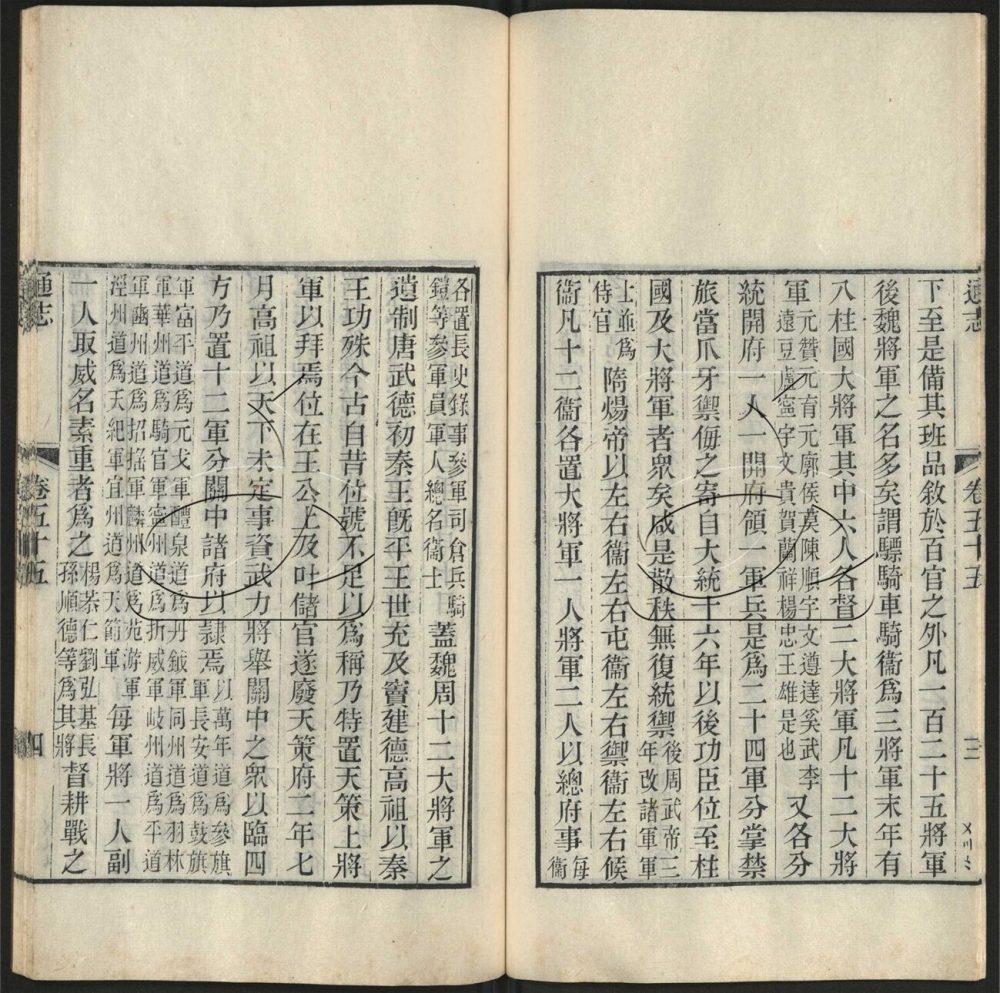 通志
卷五十五
三
下至是備其班品敘於百官之外凡一百二十五將軍
後魏將軍之名多矣謂驃騎車騎衞爲三將軍末年有
八柱國大將軍其中六人各督二大將軍凡十二大將
軍元贊元育元廓侯莫陳順宇文遵達奚武李
遠豆盧寧宇文貴賀蘭祥楊忠王雄是也又各分
統開府一人一開府領一軍兵是爲二十四軍分掌禁
旅當爪牙禦侮之寄自大統十六年以後功臣位至柱
國及大將軍者衆矣咸是散秩無復統禦後周武帝三
年改諸軍軍
士並爲
侍官隋煬帝以左右衞左右屯衞左右禦衞左右候
衞凡十二衞各置大將軍一人將軍二人以總府事每
衞
各置長史錄事參軍司倉兵騎
鎧等參軍員軍人總名衞士蓋魏周十二大將軍之
遺制唐武德初秦王旣平王世充及竇建德高祖以秦
王功殊今古自昔位號不足以爲稱乃特置天策上將
軍以拜焉位在王公上及吐儲官遂廢天策府二年七
月高祖以天下未定事資武力將舉關中之衆以臨四
方乃置十二軍分關中諸府以隸焉以萬年道爲參旗
軍長安道爲鼓旗
軍富平道爲元戈軍醴泉道爲丹鉞軍同州道爲羽林
軍華州道爲騎官軍寧州道爲折威軍岐州道爲平道
軍豳州道爲招搖軍麟州道爲苑游軍
涇州道爲天紀軍宜州道爲天節軍每軍將一人副
一人取威名素重者爲之楊恭仁劉弘基長
孫順德等爲其將督耕戰之
通志
卷五十五
四